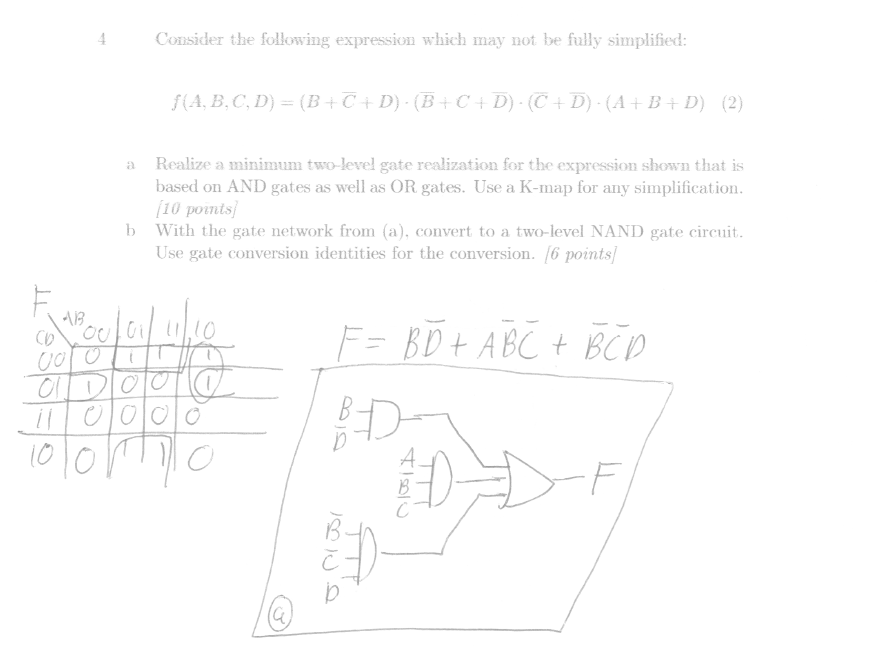 4 Consider the following expression which may not be fully simplified:
f(A, B, C, D) = (B + C̅ + D) · (B̅ + C + D̅) · (C̅ + D̅) · (A + B + D) (2)
a Realize a minimum two-level gate realization for the expression shown that is
based on AND gates as well as OR gates. Use a K-map for any simplification.
[10 points]
b With the gate network from (a), convert to a two-level NAND gate circuit.
Use gate conversion identities for the conversion. [6 points]
F
AB 00 01 11 10
CD
00 0 1 1 1
01 1 0 0 1
11 0 0 0 0
10 0 1 1 0
F = BD̅ + AB̅C̅ + B̅C̅D
B
D̅
A
B̅
C̅
F
B̅
C̅
D
a